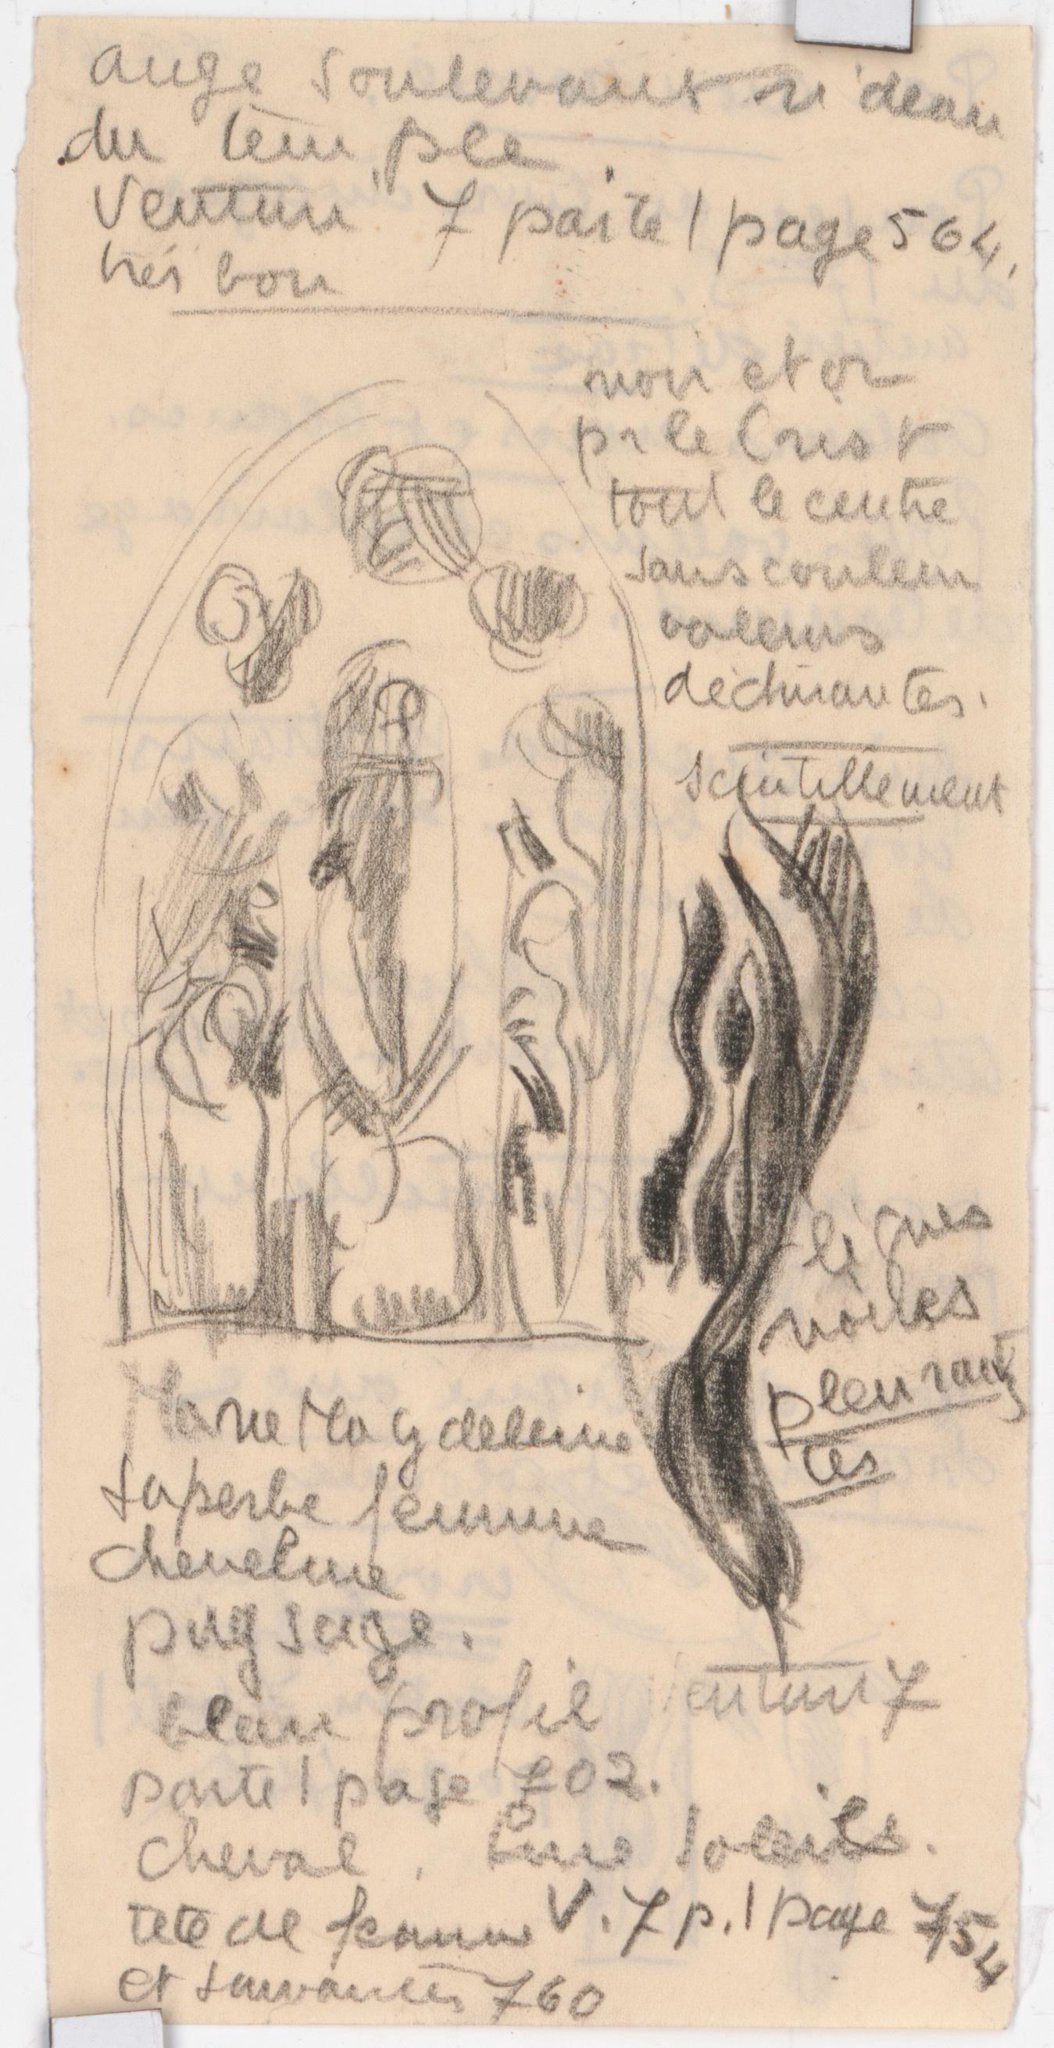 ange soulevant rideau
du temple.
Venturi 7 parte 1 page 564.
très bon
noir et or
pr le Crist
tout le centre
sans couleur
valeurs
déchirantes.
scintillement
lignes
noires
pleurant
tes
Marie Magdeleine
superbe femme
chevelure
paysage.
beau profil Venturi 7
parte 1 page 702.
cheval. Lune soleils.
tete de femme V. 7 p. 1 page 754
et suivantes 760